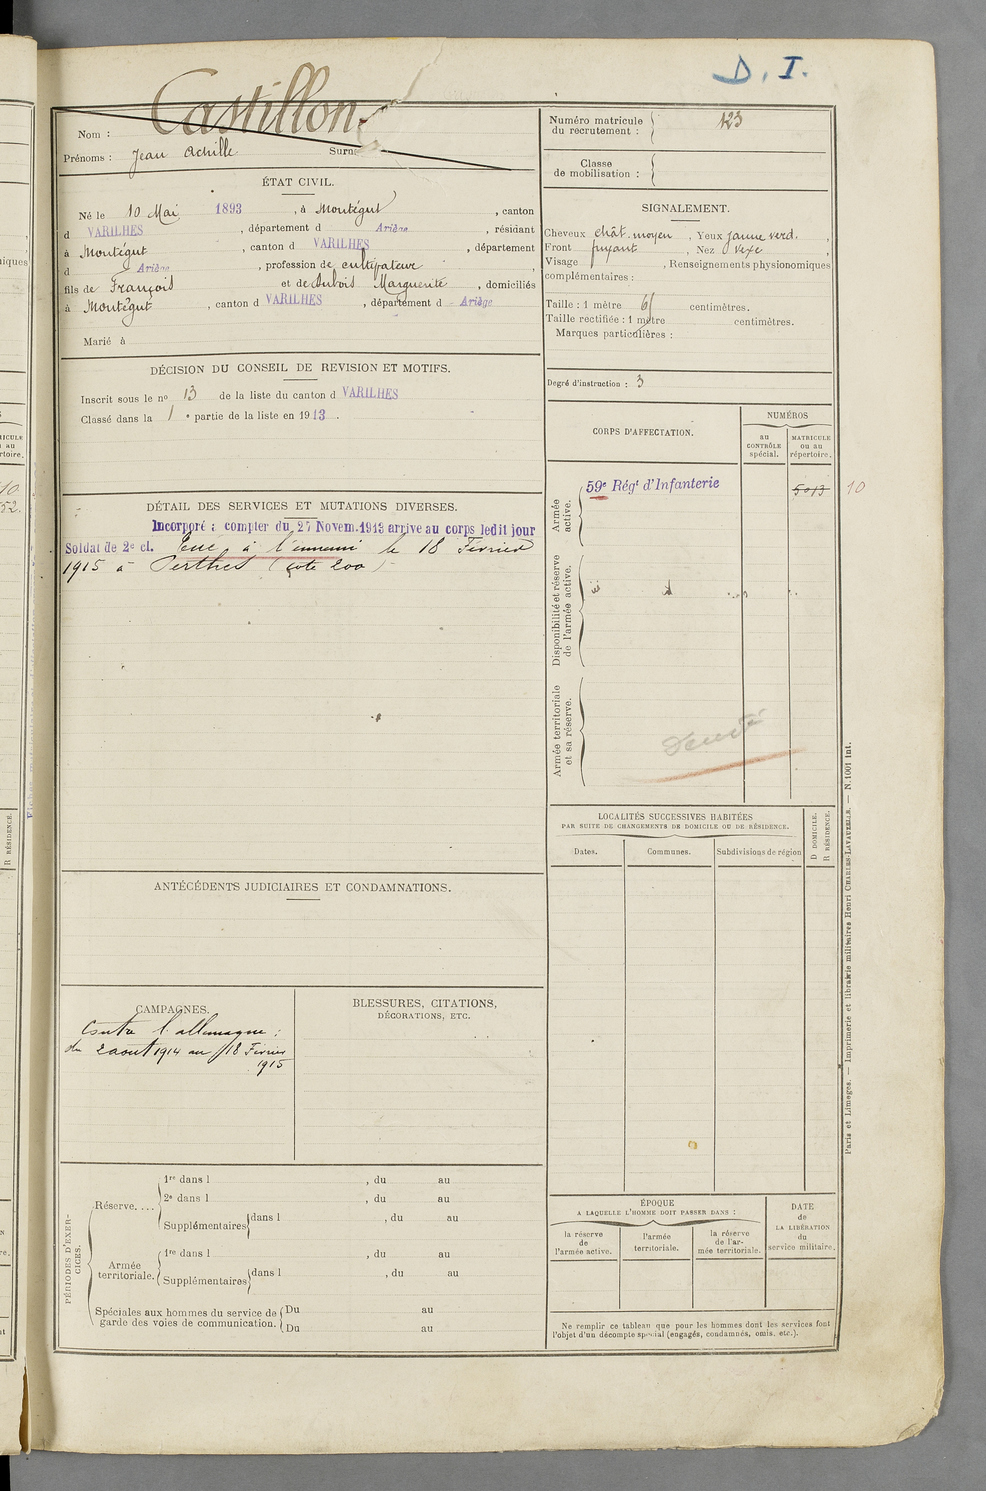 D. I.
Castillon
Nom :
Prénoms : Jean Achille Surn
ÉTAT CIVIL.
Né le 10 Mai 1893, à Montégut, canton
d VARILHES, département d Ariège, résidant
à Montégut, canton d VARILHES, département
d Ariège, profession de cultivateur,
fils de François et de Dubois Marguerite, domiciliés
à Montégut, canton d VARILHES, département d Ariège
Marié à
DÉCISION DU CONSEIL DE REVISION ET MOTIFS.
Inscrit sous le no 13 de la liste du canton d VARILHES
Classé dans la 1 e partie de la liste en 1913.
DÉTAIL DES SERVICES ET MUTATIONS DIVERSES.
Incorporé à compter du 27 Novem. 1913 arrive au corps ledit jour
Soldat de 2e cl. Tué à l'ennemi le 18 Février
1915 à Perthes (cote 200)
ANTÉCÉDENTS JUDICIAIRES ET CONDAMNATIONS.
CAMPAGNES.
Contre l'allemagne :
du 2 aout 1914 au 18 Février
1915
BLESSURES, CITATIONS,
DÉCORATIONS, ETC.
PÉRIODES D'EXER-
CICES.
Réserve....
1re dans l , du au
2e dans l , du au
Supplémentaires dans l , du au
Armée
territoriale.
1re dans l , du au
Supplémentaires dans l , du au
Spéciales aux hommes du service de
garde des voies de communication.
Du au
Du au
Numéro matricule
du recrutement : 123
Classe
de mobilisation :
SIGNALEMENT.
Cheveux chât. moyen, Yeux jaune verd.,
Front fuyant, Nez vexe
Visage , Renseignements physionomiques
complémentaires :
Taille : 1 mètre 61 centimètres.
Taille rectifiée : 1 mètre centimètres.
Marques particulières :
Degré d'instruction : 3
CORPS D'AFFECTATION.
NUMÉROS
au
CONTRÔLE
spécial.
MATRICULE
ou au
répertoire.
Armée
active.
59e Régt d'Infanterie
5013 10
Disponibilité et réserve
de l'armée active.
Armée territoriale
et sa réserve.
LOCALITÉS SUCCESSIVES HABITÉES
PAR SUITE DE CHANGEMENTS DE DOMICILE OU DE RÉSIDENCE.
Dates. Communes. Subdivisions de région
D DOMICILE.
R RÉSIDENCE.
ÉPOQUE
A LAQUELLE L'HOMME DOIT PASSER DANS :
la réserve
de
l'armée active.
l'armée
territoriale.
la réserve
de l'ar-
mée territoriale.
DATE
de
LA LIBÉRATION
du
service militaire.
Ne remplir ce tableau que pour les hommes dont les services font
l'objet d'un décompte spécial (engagés, condamnés, omis, etc.).
Paris et Limoges. — Imprimerie et librairie militaires Henri CHARLES-LAVAUZELLE. — N. 1001 int.